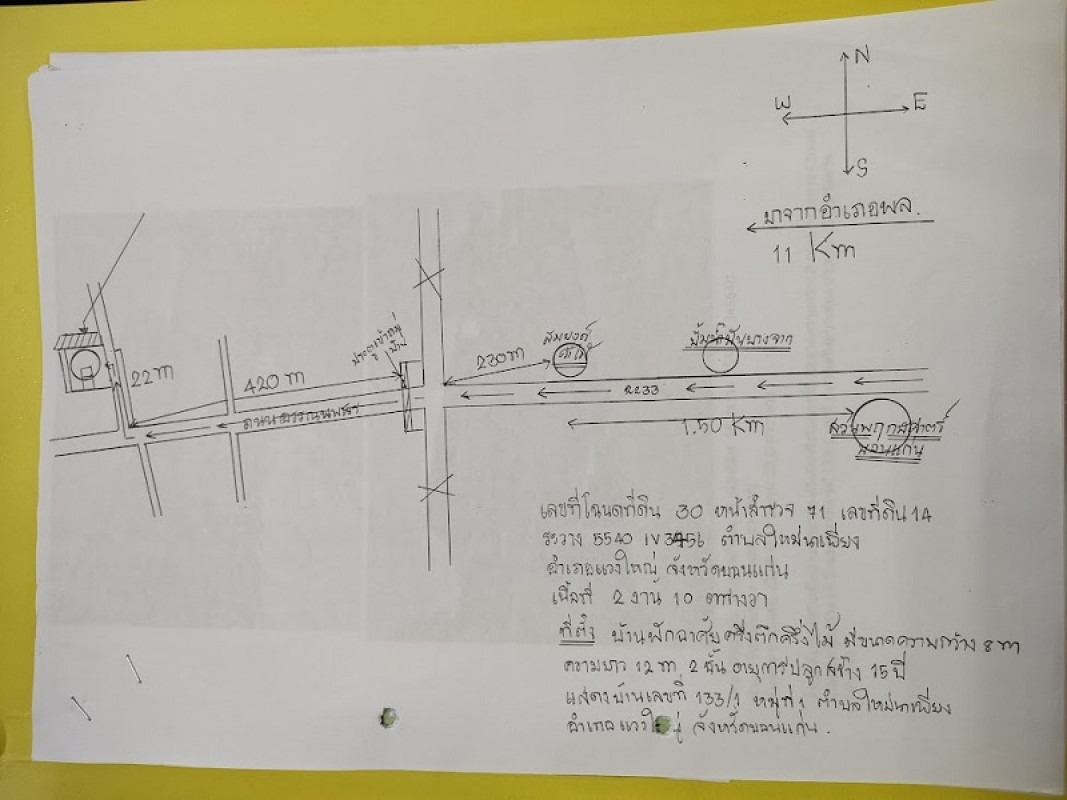 N
W E
S
มาจากอำเภอพล.
11 Km
ประตูเข้าหมู่
บ้าน
สมยงค์
230 m
ปั้มน้ำมันบางจาก
22 m
420 m
2233
1.50 Km
สวนพฤกษศาสตร์
ขอนแก่น
เลขที่โฉนดที่ดิน 30 หน้าสำรวจ 71 เลขที่ดิน 14
ระวาง 5540 IV 3456 ตำบลใหม่นาเพียง
อำเภอแวงใหญ่ จังหวัดขอนแก่น
เนื้อที่ 2 งาน 10 ตารางวา
ที่ตั้ง บ้านพักอาศัยครึ่งตึกครึ่งไม้ มีขนาดความกว้าง 8 m
ความยาว 12 m, 2 ชั้น อายุการปลูกสร้าง 15 ปี
แสดงบ้านเลขที่ 133/1 หมู่ที่ 1 ตำบลใหม่นาเพียง
อำเภอแวงใหญ่ จังหวัดขอนแก่น.